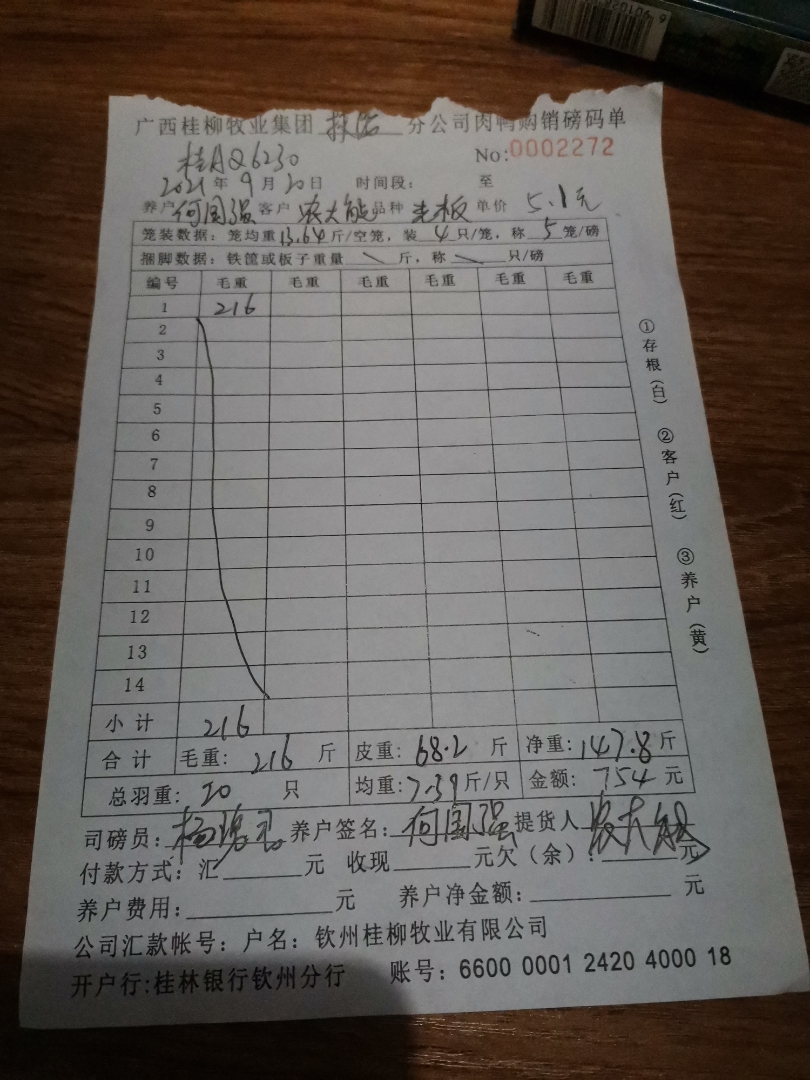 广西桂柳牧业集团 扶绥 分公司肉鸭购销磅码单
桂AQ6230 No:0002272
2021年9月20日 时间段: 至
养户 何国强 客户 农大能 品种 老板 单价 5.1元
笼装数据: 笼均重13.64斤/空笼, 装 4 只/笼, 称 5 笼/磅
捆脚数据: 铁筐或板子重量 \ 斤, 称 \ 只/磅
编号 毛重 毛重 毛重 毛重 毛重
1 216
2
3
4
5
6
7
8
9
10
11
12
13
14
小计 216
合计 毛重: 216 斤 皮重: 68.2 斤 净重: 147.8斤
总羽重: 20 只 均重: 7.39斤/只 金额: 754 元
司磅员: 杨 养户签名: 何国强 提货人 农大能
付款方式: 汇______元 收现______元欠(余): ______元
养户费用: ______元 养户净金额: ______元
公司汇款帐号: 户名: 钦州桂柳牧业有限公司
开户行:桂林银行钦州分行 账号: 6600 0001 2420 4000 18
①存根(白) ②客户(红) ③养户(黄)